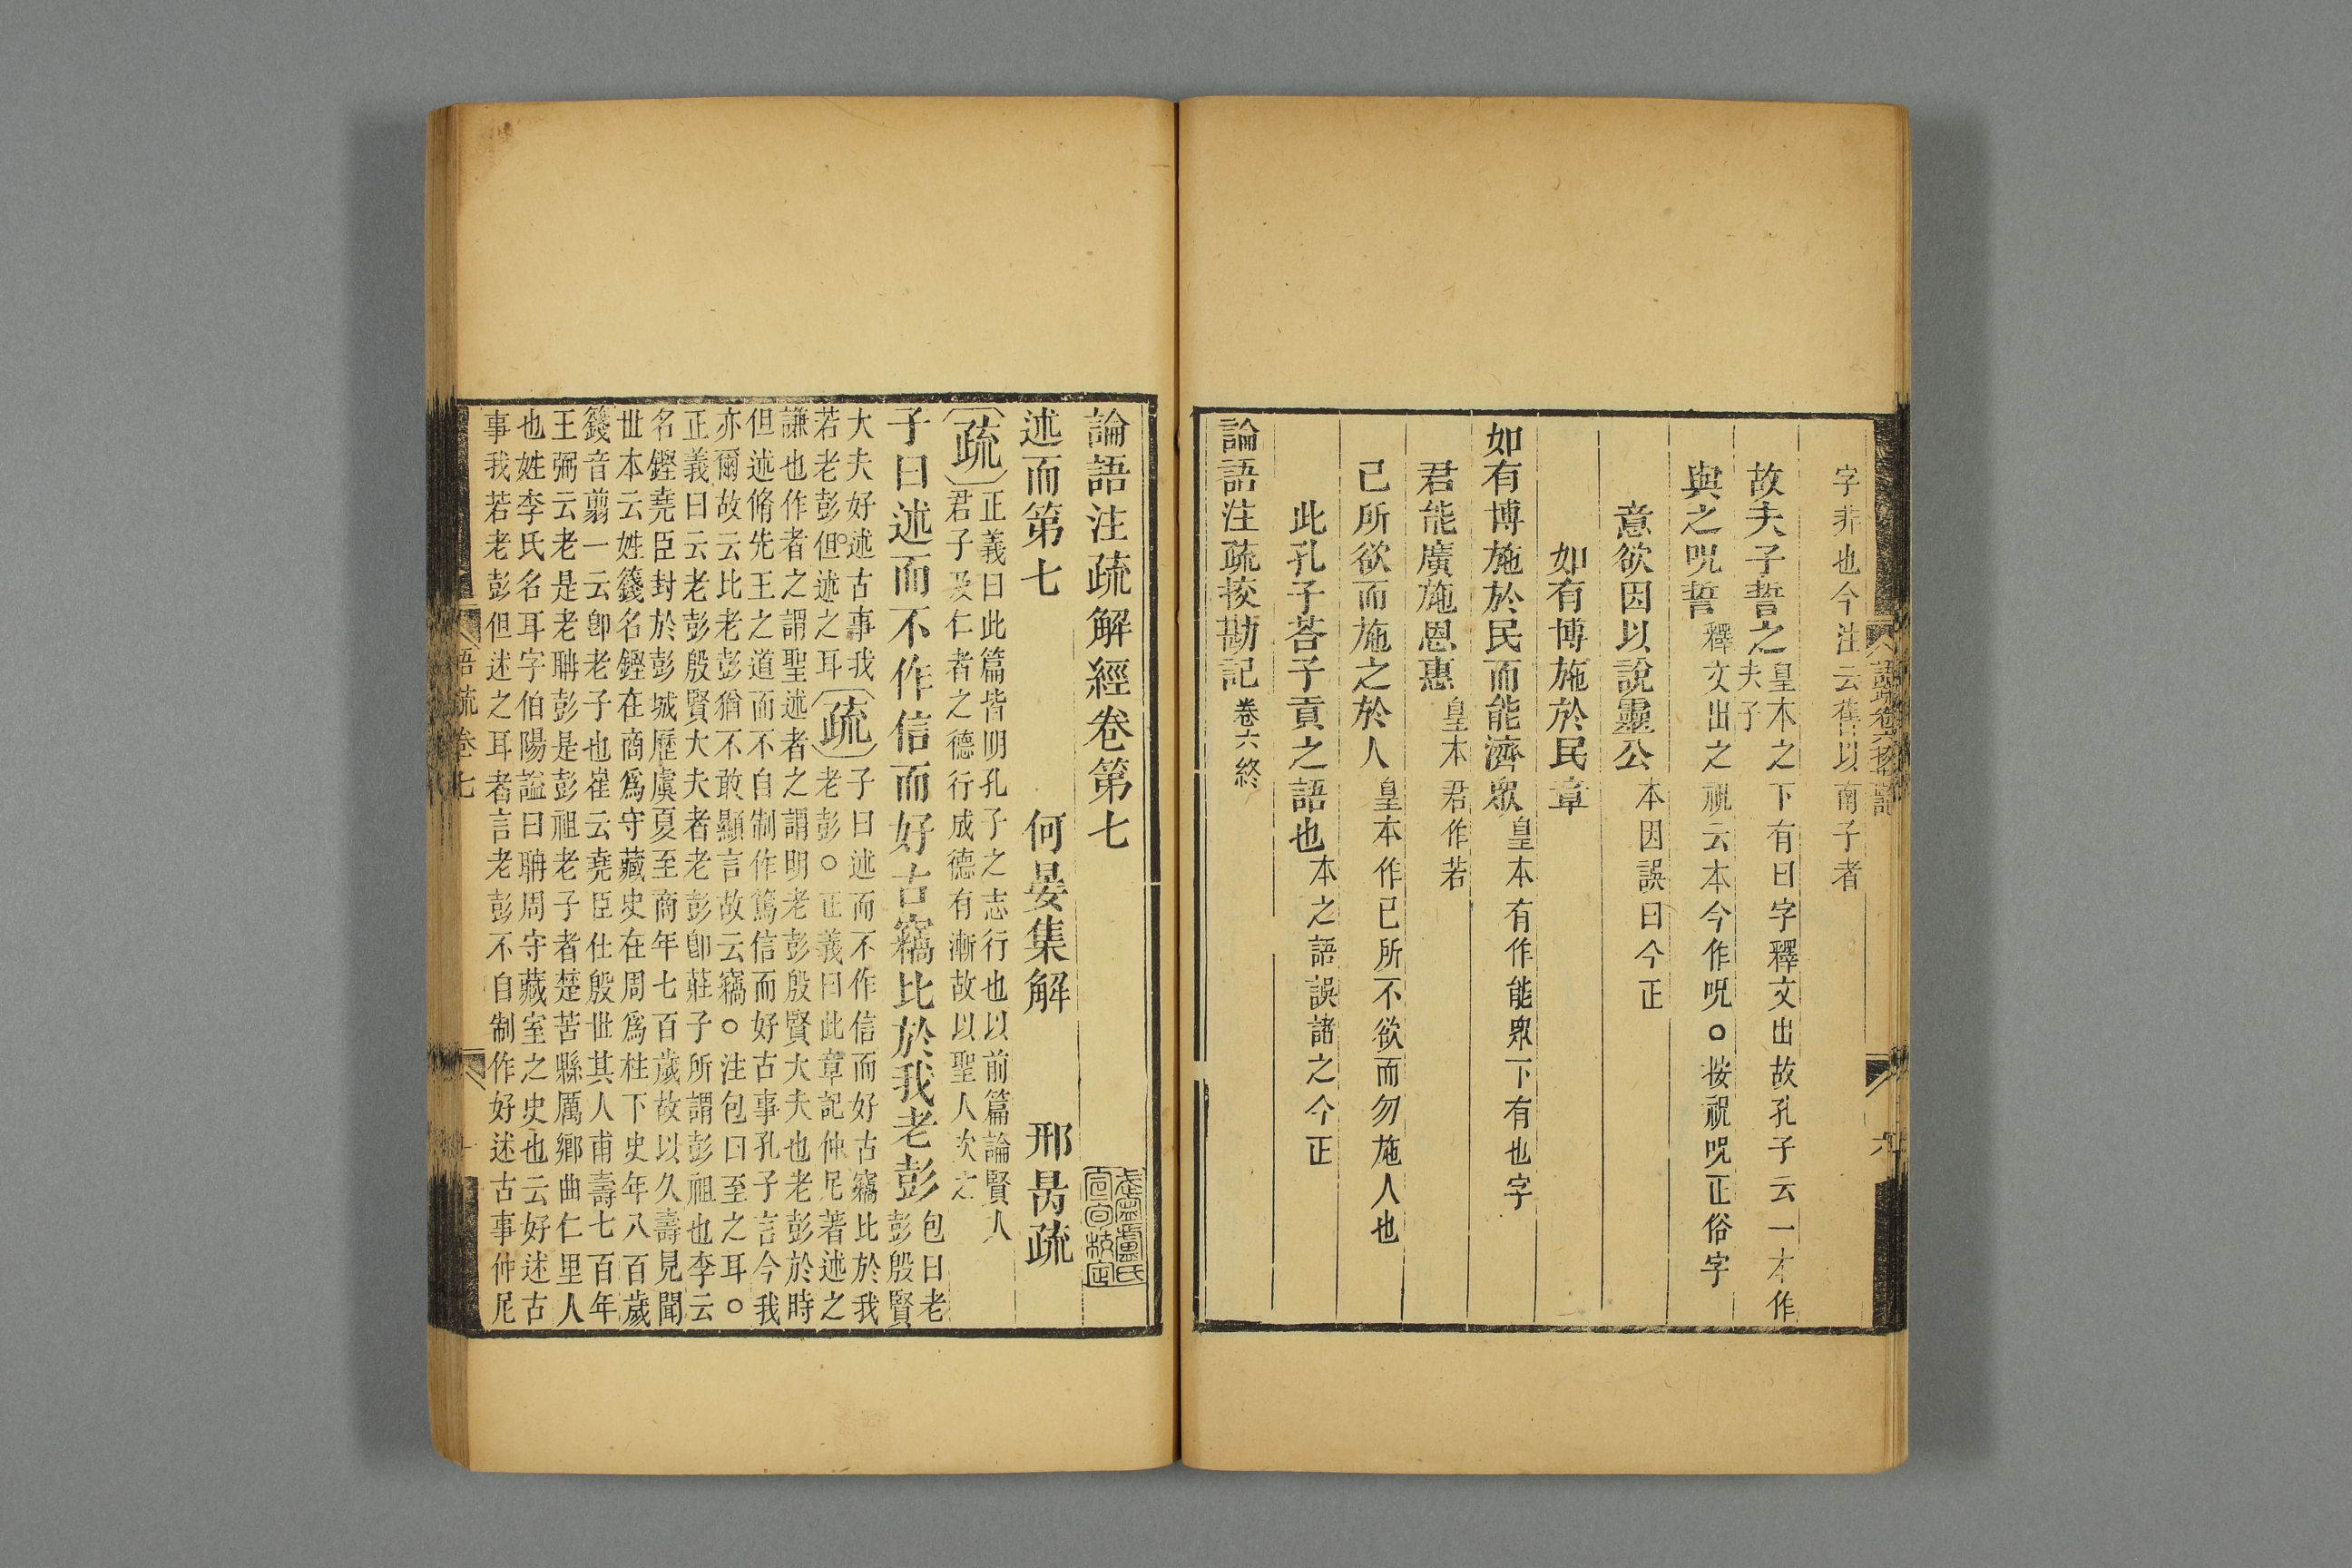 字非也今注云舊以南子者
故夫子誓之皇本之下有曰字釋文出故孔子云一本作
夫子
與之呪誓釋文出之祝云本今作呪○按祝呪正俗字
意欲因以說靈公本因誤曰今正
如有博施於民章
如有博施於民而能濟衆皇本有作能衆下有也字
君能廣施恩惠皇本君作若
己所欲而施之於人皇本作己所不欲而勿施人也
此孔子荅子貢之語也本之語誤諸之今正
論語注疏挍勘記卷六終
論語注疏解經卷第七
述而第七
何晏集解 邢昺疏
疏正義曰此篇皆明孔子之志行也以前篇論賢人
君子及仁者之德行成德有漸故以聖人次之
子曰述而不作信而好古竊比於我老彭包曰老
彭殷賢
大夫好述古事我
若老彭但述之耳
疏子曰述而不作信而好古竊比於我
老彭○正義曰此章記仲尼著述之
謙也作者之謂聖述者之謂明老彭殷賢大夫也老彭於時
但述脩先王之道而不自制作篤信而好古事孔子言今我
亦爾故云比老彭猶不敢顯言故云竊○注包曰至之耳○
正義曰云老彭殷賢大夫者老彭卽莊子所謂彭祖也李云
名鏗堯臣封於彭城歷虞夏至商年七百歲故以久壽見聞
世本云姓籛名鏗在商爲守藏史在周爲柱下史年八百歲
籛音翦一云卽老子也崔云堯臣仕殷世其人甫壽七百年
王弼云老是老聃彭是彭祖老子者楚苦縣厲鄉曲仁里人
也姓李氏名耳字伯陽謚曰聃周守藏室之史也云好述古
事我若老彭但述之耳者言老彭不自制作好述古事仲尼
語疏卷七